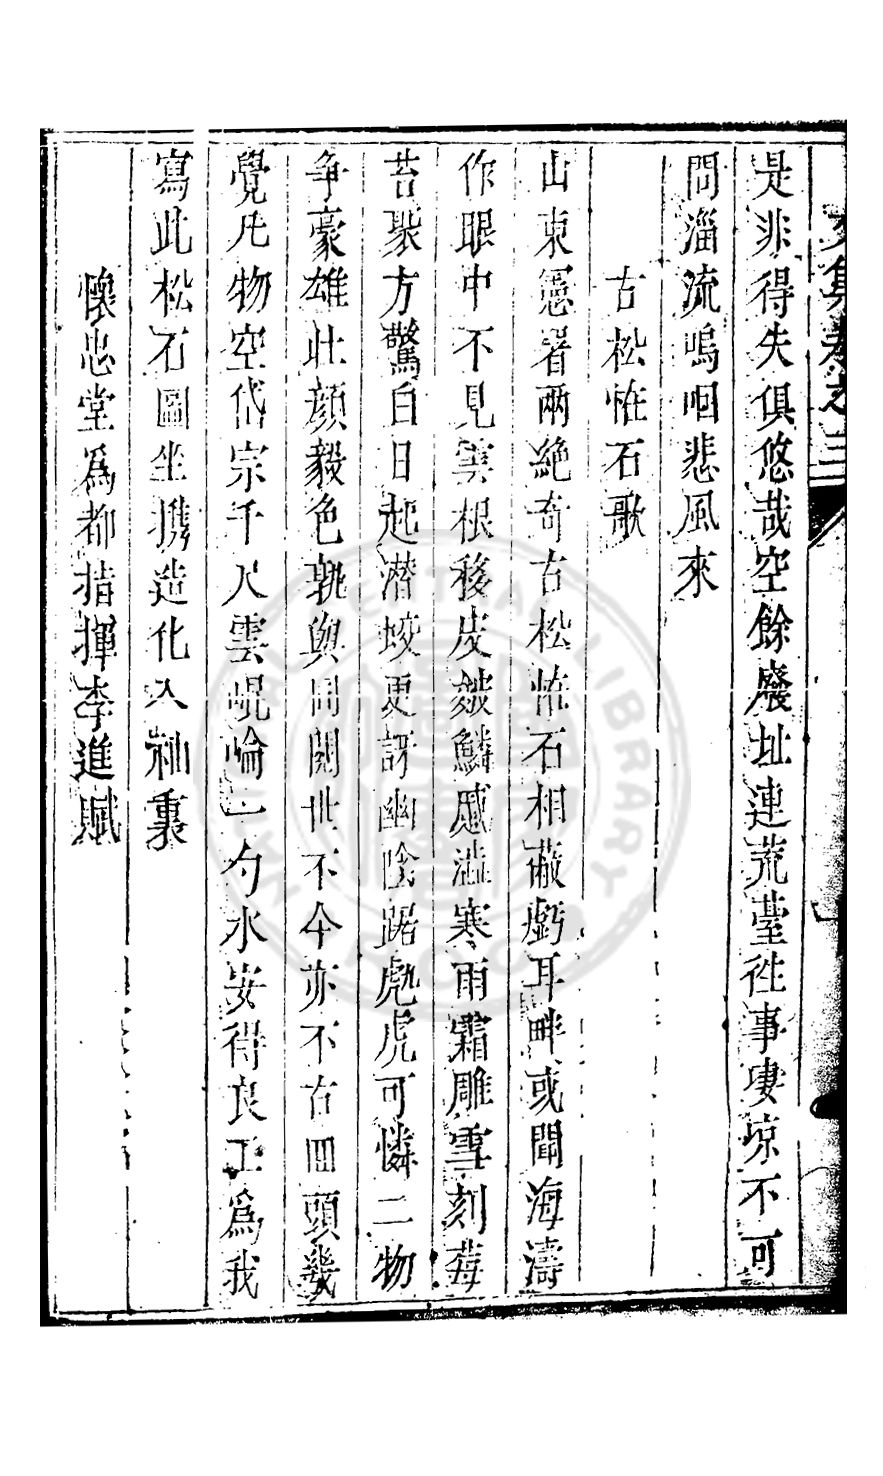 文集卷之三
是非得失俱悠哉空餘廢址連荒臺往事凄凉不可
問淄流嗚咽悲風來
古松恠石歌
山東憲署兩絶奇古松恠石相蔽虧耳畔或聞海濤
作眼中不見雲根移皮皴鱗蹙澁寒雨霜雕雪刻莓
苔聚方驚白日起潜蛟更訝幽陰踞彪虎可憐二物
争豪雄壮顔毅色孰與同閲世不今亦不古回頭幾
覺凡物空岱宗千尺雲崐崘一勺水安得良工爲我
寫此松石圖坐携造化入袖裏
懷忠堂爲都指揮李進賦
NATIONAL CENTRAL LIBRARY